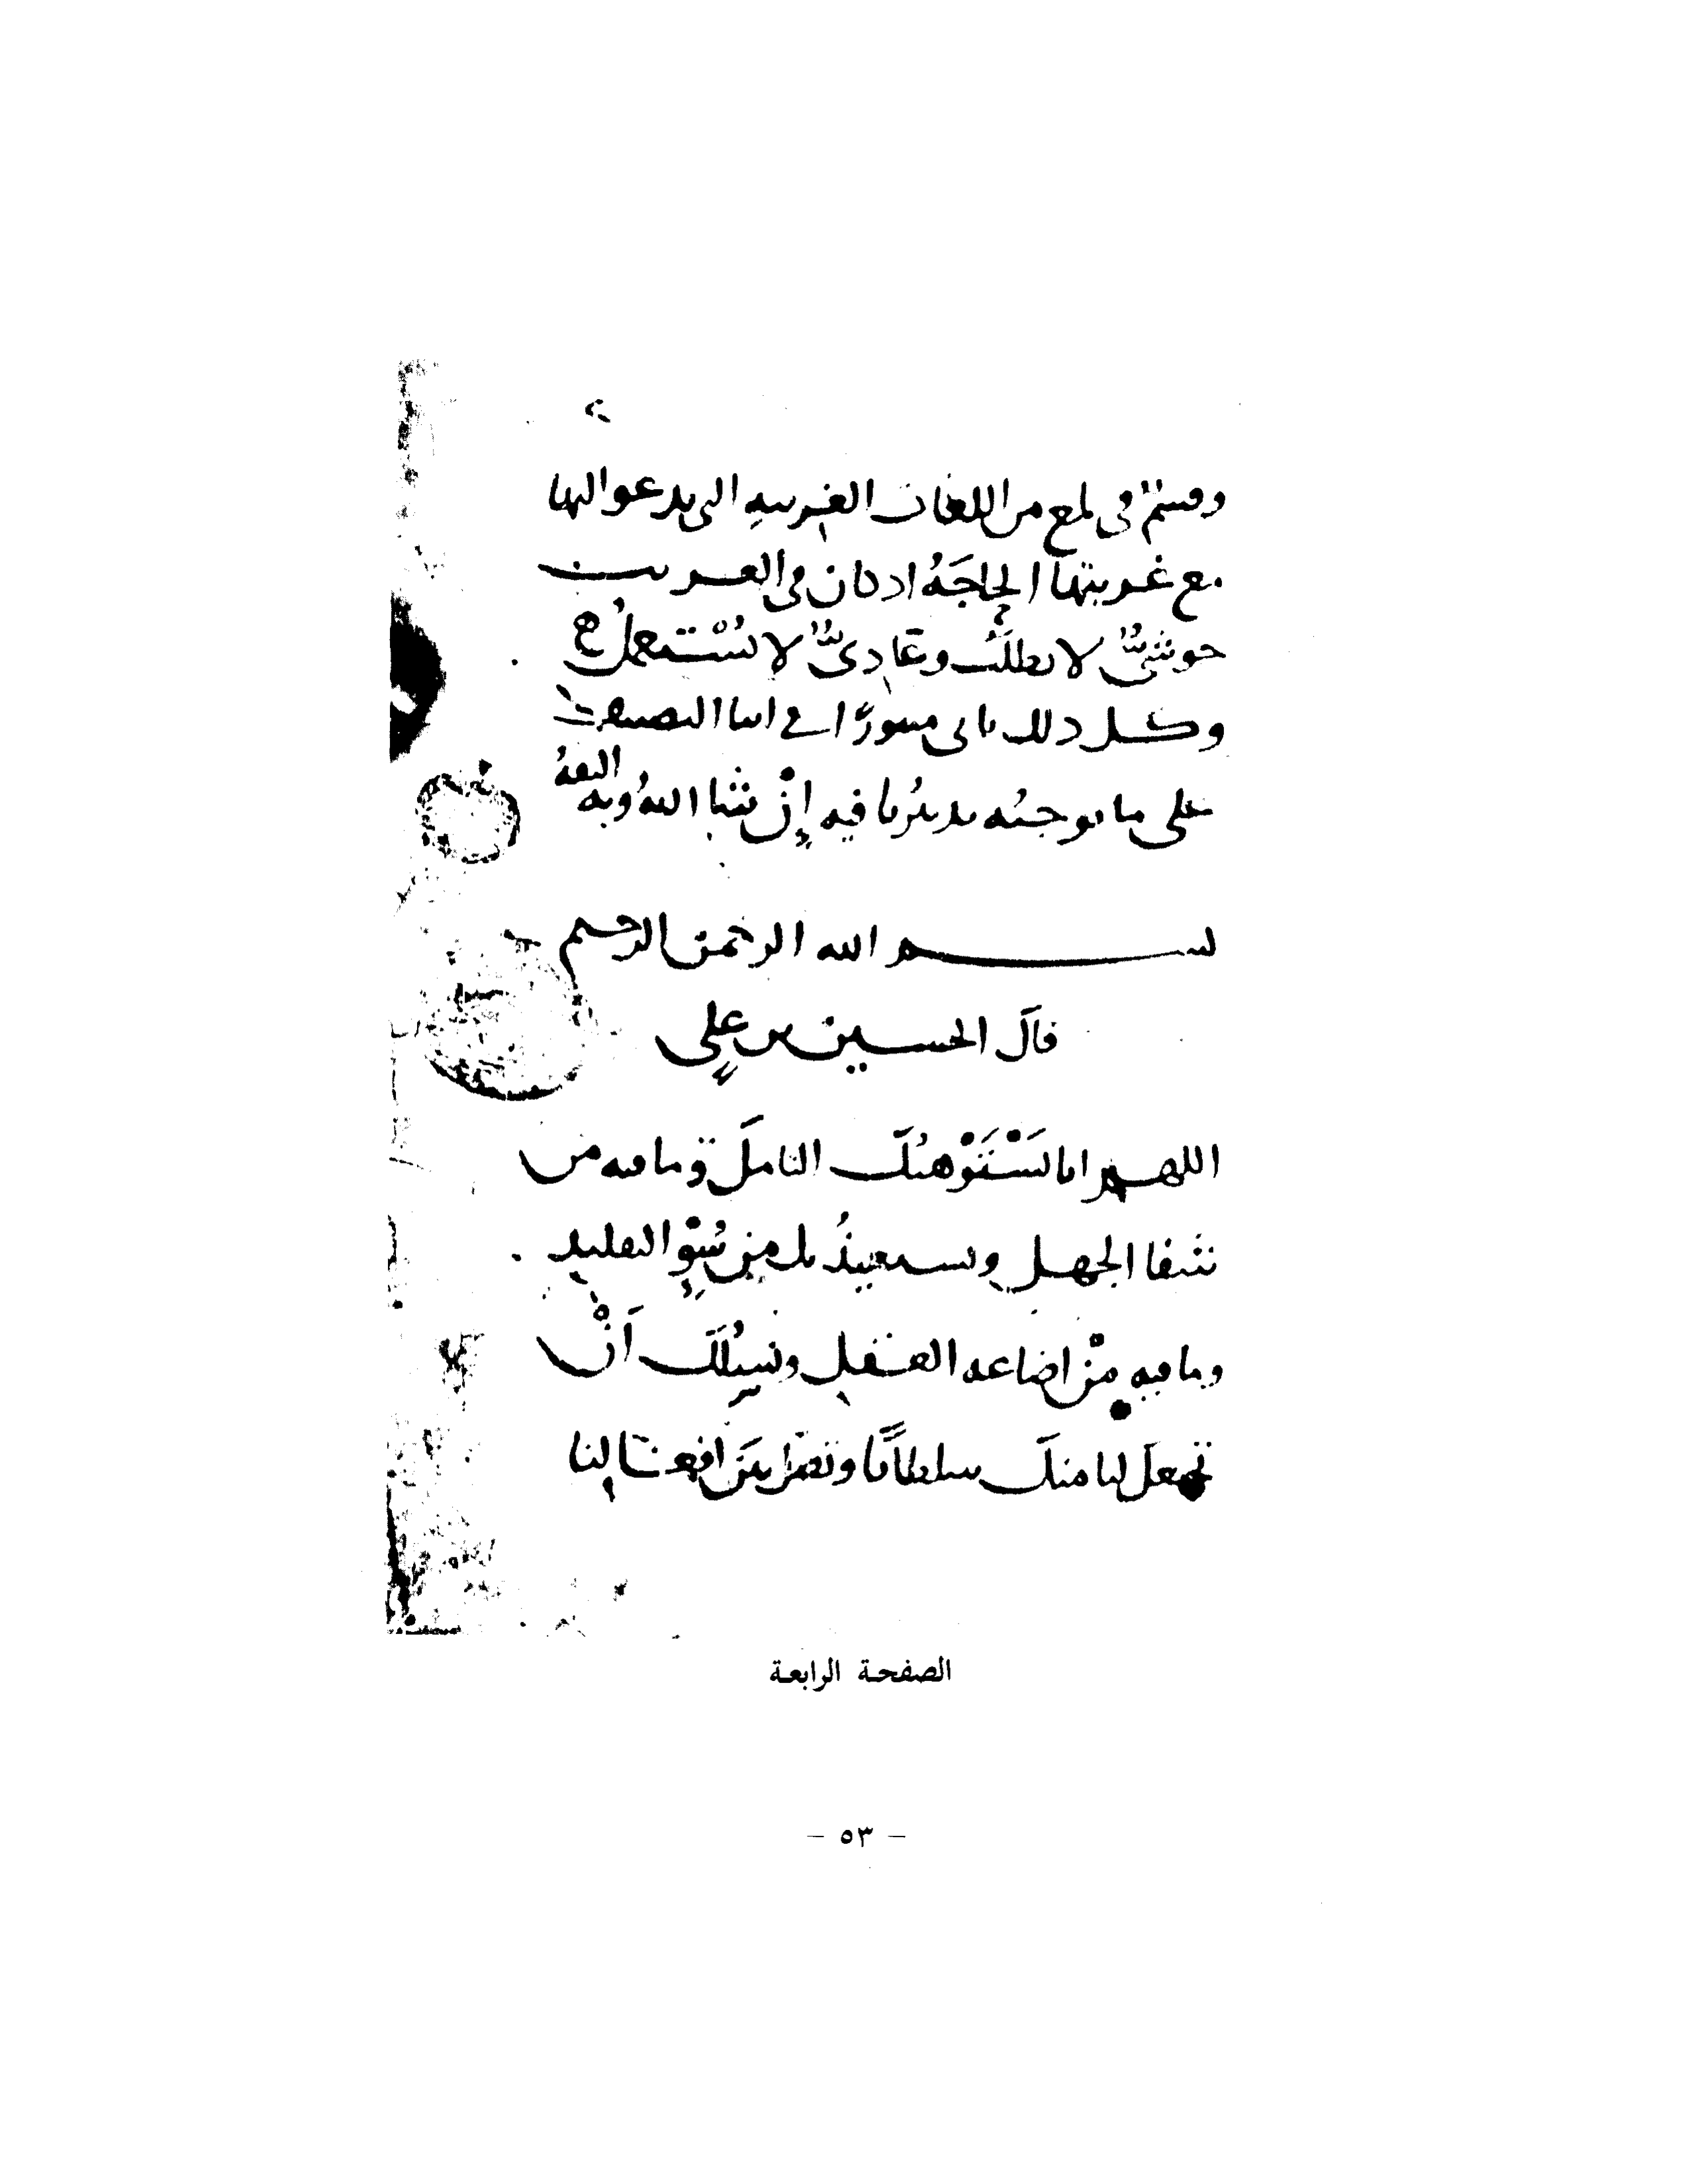 وقسم في لمع من اللغات الغريبه التي يدعوا اليها
مع غربتها الحاجَهُ اذ كان في الغريب
حوشيٌّ لا يطلبُ وعَاديٌّ لا يُسْتعملُ
وكل ذلك ياتي منثورًا في اثنا التصنيف
على ما يوجبُه تدبيرُنا فيه إنْ شا اللهُ وبه الثقهُ
بسم الله الرحمن الرحيم
قالَ الحسين بن علي
اللهم انا نَسْتَوْهبُكَ التاملَ وما فيه من
شفا الجهل ونستعيذُ بك مِن سُوْءِ التقليد
وما فيه مِنْ اضاعه العقل ونسئلُكَ اَنْ
تجعلَ لنا منكَ سلطانًا ونصرًا لنا
الصفحة الرابعة
– ٥٣ –